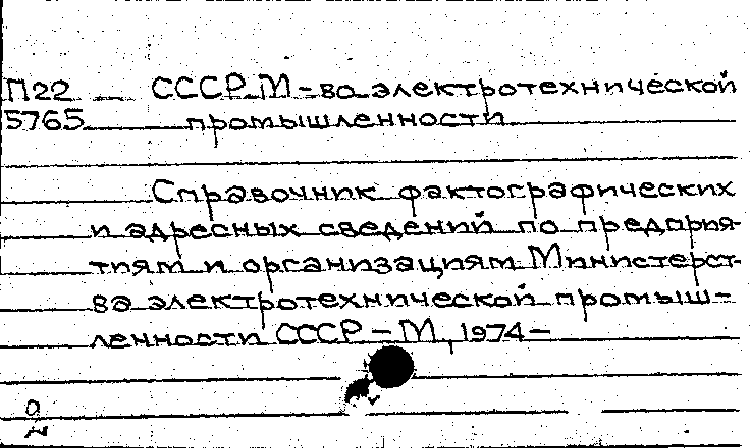 П22 СССР. М-во электротехнической
5765 промышленности
Справочник фактографических
и адресных сведений по предприя-
тиям и организациям Министерст-
ва электротехнической промыш-
ленности СССР – М., 1974 –